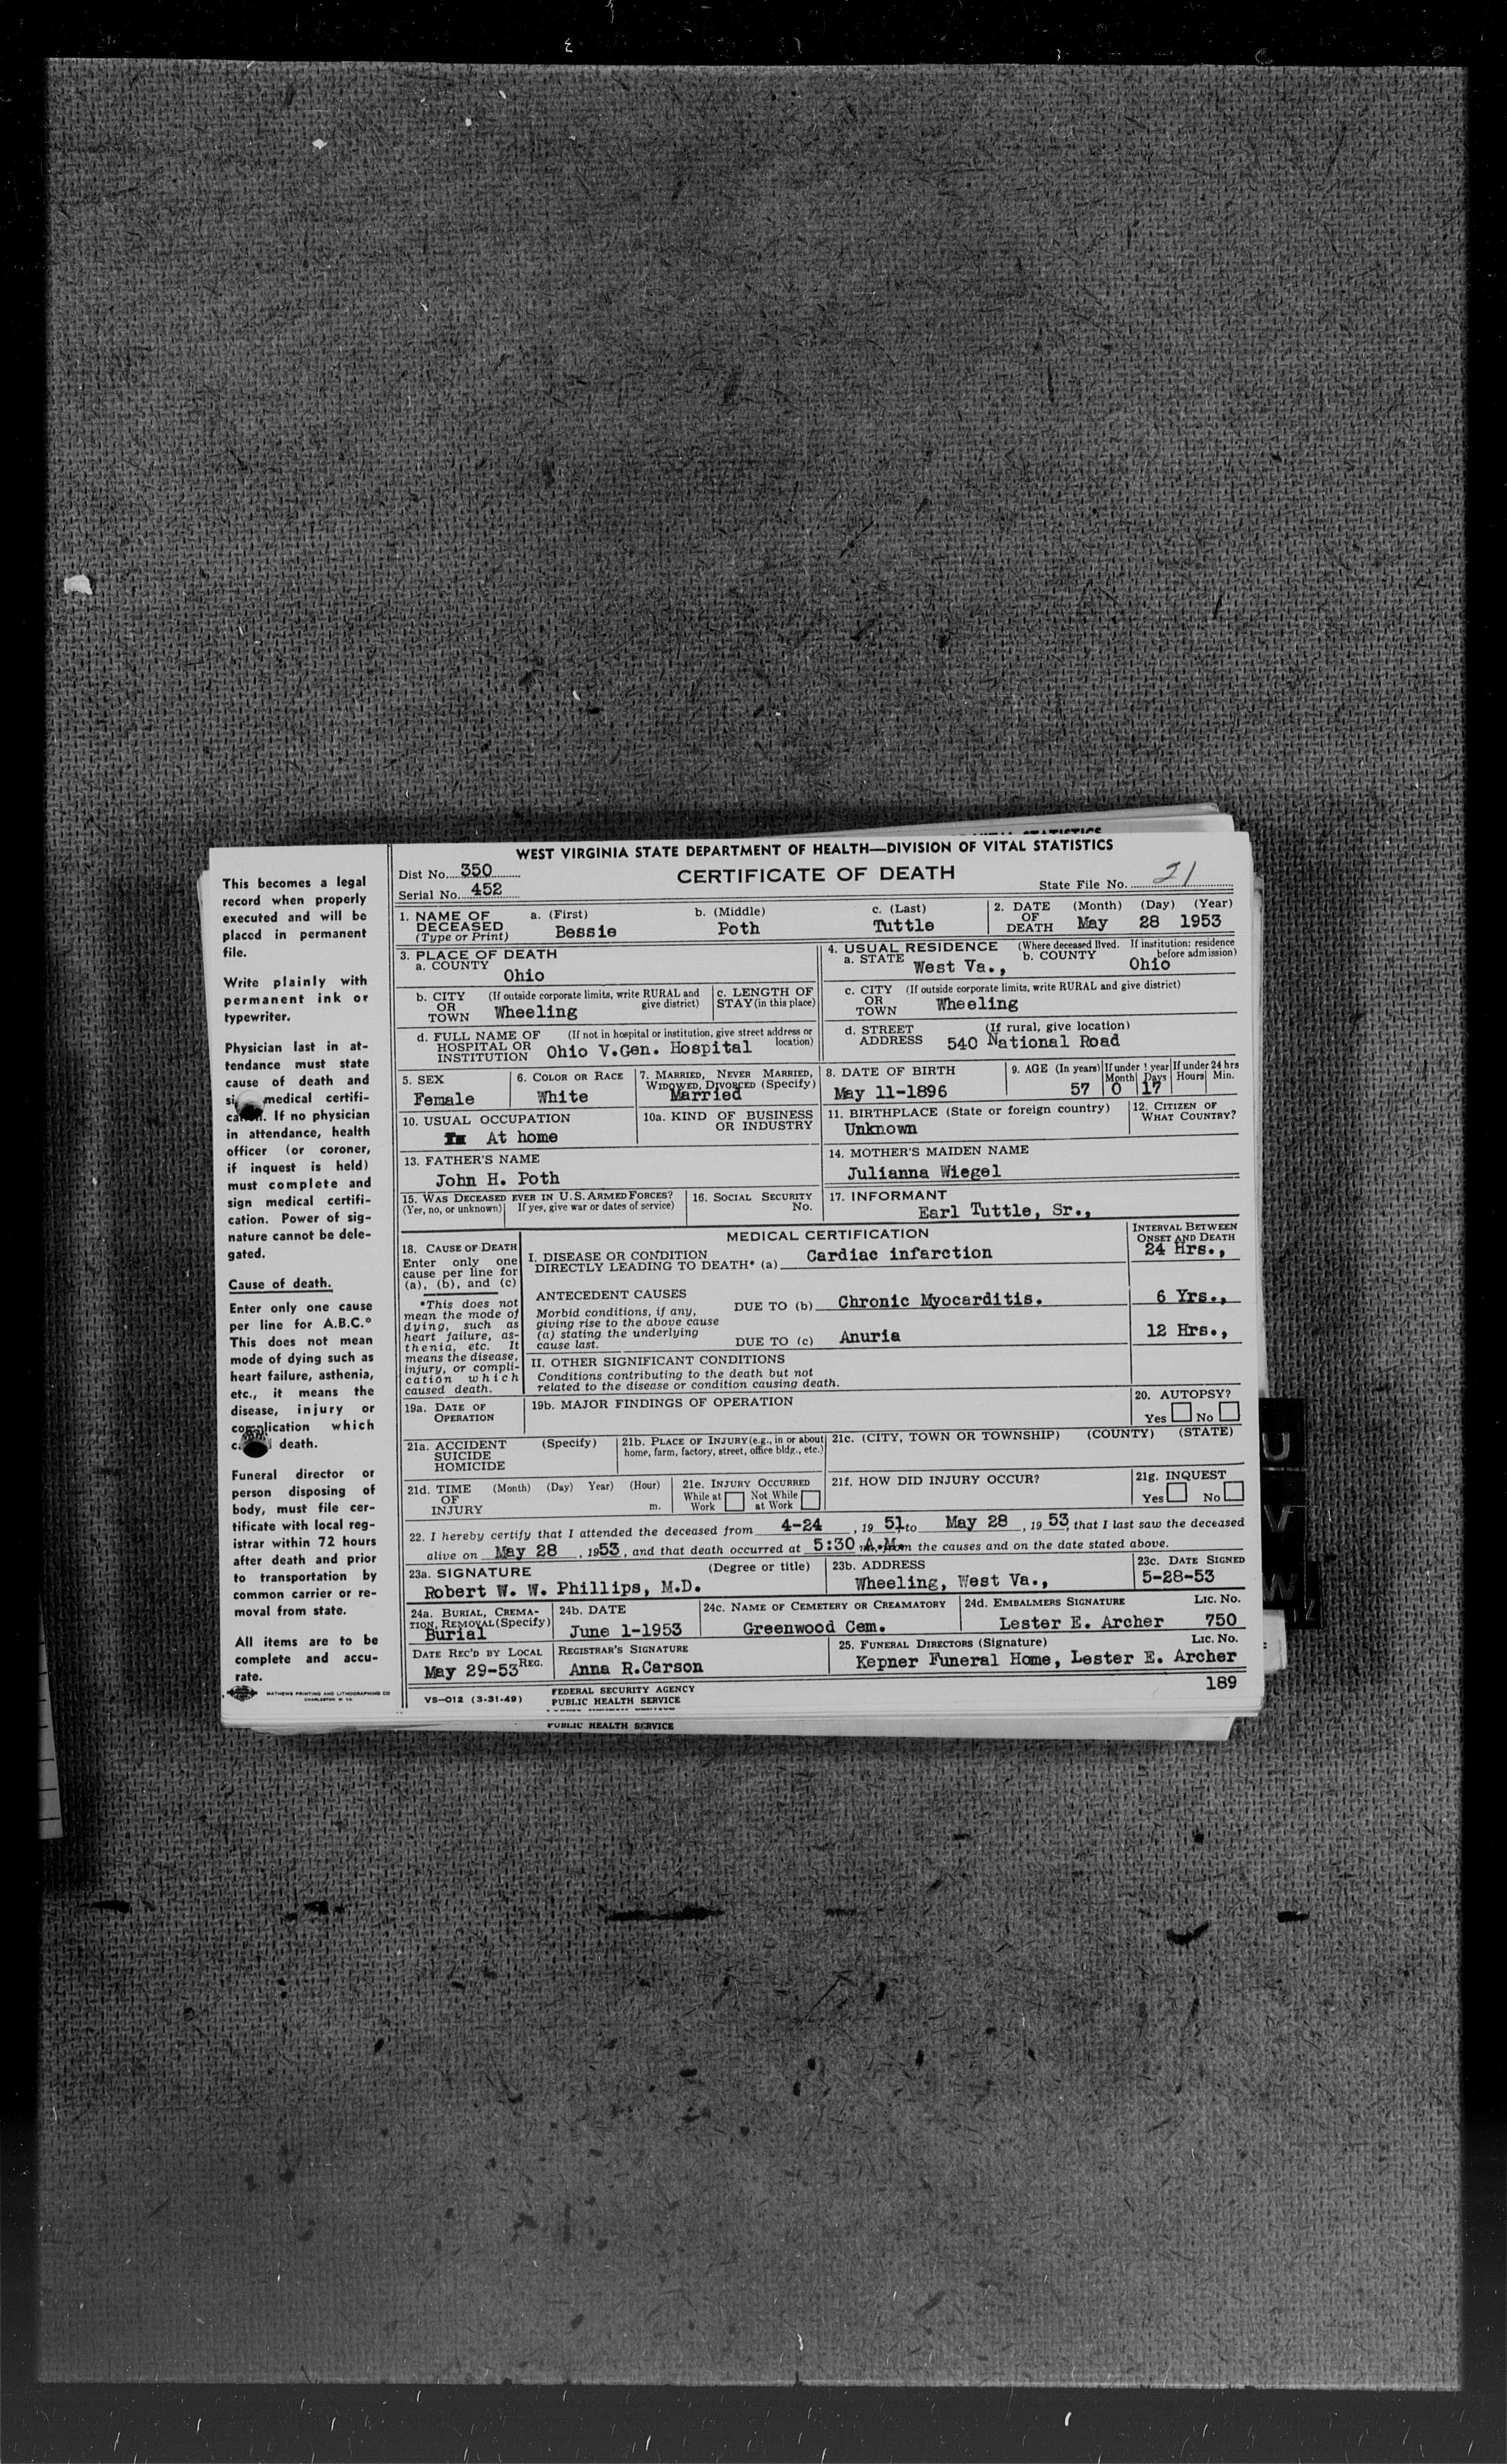 This becomes a legal
record when properly
executed and will be
placed in permanent
file.
Write plainly with
permanent ink or
typewriter.
Physician last in at-
tendance must state
cause of death and
medical certifi-
If no physician
in attendance, health
officer (or coroner,
if inquest is held)
must complete and
sign medical certifi-
cation. Power of sig-
nature cannot be dele-
gated.
Cause of death.
Enter only one cause
per line for A.B.C.*
This does not mean
mode of dying such as
heart failure, asthenia,
etc., it means the
disease, injury or
complication which
death.
Funeral director or
person disposing of
body, must file cer-
tificate with local reg-
istrar within 72 hours
after death and prior
to transportation by
common carrier or re-
moval from state.
All items are to be
complete and accu-
rate.
MATHEWS PRINTING AND LITHOGRAPHING CO
CHARLESTON W VA
WEST VIRGINIA STATE DEPARTMENT OF HEALTH—DIVISION OF VITAL STATISTICS
Dist No. 350
CERTIFICATE OF DEATH
Serial No. 452
State File No. 21
1. NAME OF DECEASED (Type or Print) a. (First) Bessie b. (Middle) Poth c. (Last) Tuttle
2. DATE OF DEATH (Month) (Day) (Year) May 28 1953
3. PLACE OF DEATH
a. COUNTY Ohio
4. USUAL RESIDENCE (Where deceased lived. If institution: residence before admission)
a. STATE West Va., b. COUNTY Ohio
b. CITY OR TOWN (If outside corporate limits, write RURAL and give district) Wheeling
c. LENGTH OF STAY (in this place)
c. CITY OR TOWN (If outside corporate limits, write RURAL and give district) Wheeling
d. FULL NAME OF HOSPITAL OR INSTITUTION (If not in hospital or institution, give street address or location) Ohio V.Gen. Hospital
d. STREET ADDRESS (If rural, give location) 540 National Road
5. SEX Female
6. COLOR OR RACE White
7. MARRIED, NEVER MARRIED, WIDOWED, DIVORCED (Specify) Married
8. DATE OF BIRTH May 11-1896
9. AGE (In years) 57 If under 1 year Month 0 Days 17 If under 24 hrs Hours Min.
10. USUAL OCCUPATION At home
10a. KIND OF BUSINESS OR INDUSTRY
11. BIRTHPLACE (State or foreign country) Unknown
12. CITIZEN OF WHAT COUNTRY?
13. FATHER'S NAME John H. Poth
14. MOTHER'S MAIDEN NAME Julianna Wiegel
15. WAS DECEASED EVER IN U.S. ARMED FORCES? (Yes, no, or unknown) If yes, give war or dates of service)
16. SOCIAL SECURITY No.
17. INFORMANT Earl Tuttle, Sr.,
18. CAUSE OF DEATH
Enter only one
cause per line for
(a), (b), and (c)
*This does not
mean the mode of
dying, such as
heart failure, as-
thenia, etc. It
means the disease,
injury, or compli-
cation which
caused death.
MEDICAL CERTIFICATION
INTERVAL BETWEEN ONSET AND DEATH
I. DISEASE OR CONDITION
DIRECTLY LEADING TO DEATH* (a) Cardiac infarction 24 Hrs.,
ANTECEDENT CAUSES
Morbid conditions, if any,
giving rise to the above cause
(a) stating the underlying
cause last.
DUE TO (b) Chronic Myocarditis. 6 Yrs.,
DUE TO (c) Anuria 12 Hrs.,
II. OTHER SIGNIFICANT CONDITIONS
Conditions contributing to the death but not
related to the disease or condition causing death.
19a. DATE OF OPERATION
19b. MAJOR FINDINGS OF OPERATION
20. AUTOPSY?
Yes No
21a. ACCIDENT SUICIDE HOMICIDE (Specify)
21b. PLACE OF INJURY (e.g., in or about home, farm, factory, street, office bldg., etc.)
21c. (CITY, TOWN OR TOWNSHIP) (COUNTY) (STATE)
21d. TIME OF INJURY (Month) (Day) Year) (Hour) m.
21e. INJURY OCCURRED While at Work Not While at Work
21f. HOW DID INJURY OCCUR?
21g. INQUEST
Yes No
22. I hereby certify that I attended the deceased from 4-24, 19 51 to May 28, 19 53, that I last saw the deceased
alive on May 28, 1953, and that death occurred at 5:30 A.M. from the causes and on the date stated above.
23a. SIGNATURE (Degree or title) Robert W. W. Phillips, M.D.
23b. ADDRESS Wheeling, West Va.,
23c. DATE SIGNED 5-28-53
24a. BURIAL, CREMATION, REMOVAL (Specify) Burial
24b. DATE June 1-1953
24c. NAME OF CEMETERY OR CREAMATORY Greenwood Cem.
24d. EMBALMERS SIGNATURE Lester E. Archer LIC. NO. 750
DATE REC'D BY LOCAL REG. May 29-53
REGISTRAR'S SIGNATURE Anna R.Carson
25. FUNERAL DIRECTORS (Signature) Kepner Funeral Home, Lester E. Archer LIC. NO.
189
VS—012 (3-31-49)
FEDERAL SECURITY AGENCY
PUBLIC HEALTH SERVICE
PUBLIC HEALTH SERVICE
U
V
W